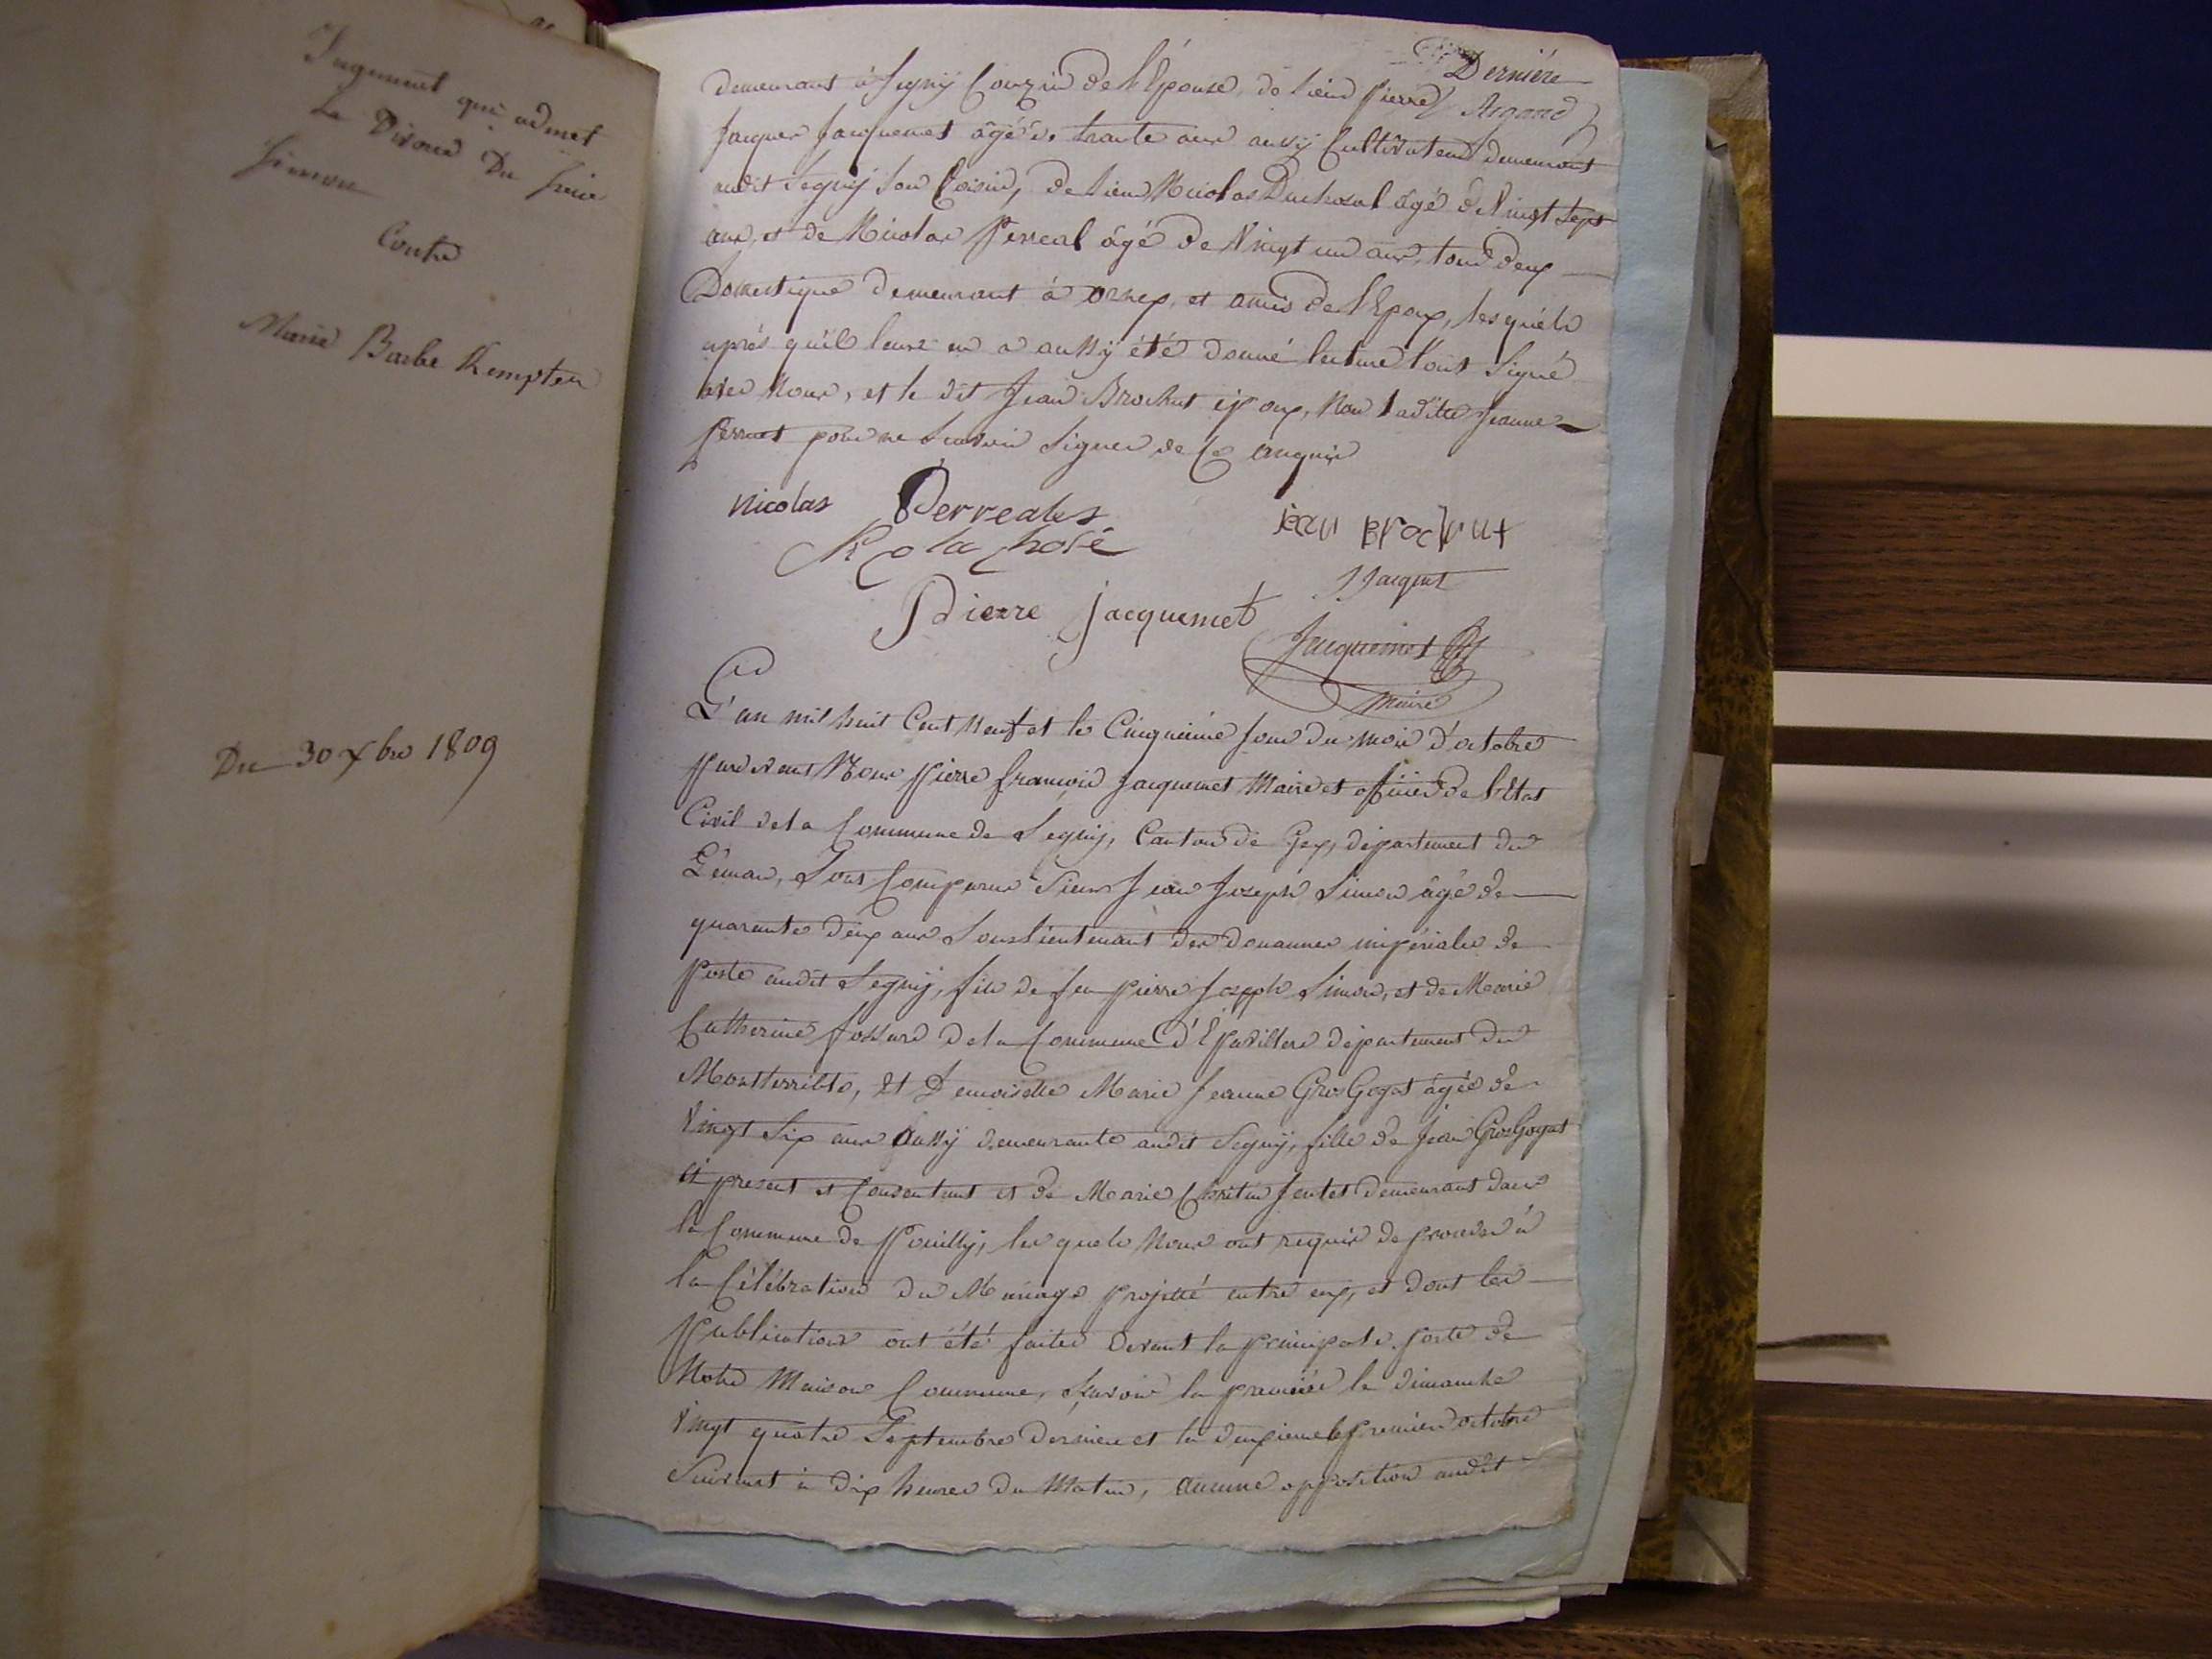 Jugement qui admet
Le Divorce Du sieur
Simon
Contre
Marie Barbe Kempter
Du 30 xbre 1809
Dernière
Argand
demeurant à Segny Couzin de l'Épouse, de sieur Pierre
Jacques Jacquemet âgé de trante ans aussy Cultivateur demeurant
audit Segny son Voisin, de sieur Nicolas Duchosal âgé de Vingt Sept
ans, et de Nicolas Perreal âgé de Vingt un ans, tous deux
Domestique demeurant à ornex, et amis de l'Epoux, les quéls
après qu'il leurs en a aussy été donné lecture l'ont Signé
avec Nous, et le dit Jean Brochut époux, Non laditte Jeanne
Perruet pour ne Scavoir Signer de Ce anquis
Nicolas Perreales
jean Brochut
J Jaquet
Pierre Jacquemet
Jacquemet
maire
L'an mil huit Cent Neuf et le Cinquième Jour du mois d'octobre
pardevant Nous Pierre François Jacquemet Maire et officier de l'Etat
Civil de la Commune de Segny, Canton de Gex, département du
Léman, Sont Comparus Sieur Jean Joseph Simon âgé de
quarante deux ans Souslieutenant des douannes impériales de
Poste audit Segny, fils de feu Pierre Joseph Simon, et de Marie
Catherine fossard de la Commune d'Epavillers département du
Montterrible, Et Demoiselle Marie Jeanne GrosGogat âgée de
Vingt Six ans aussy demeurante audit Segny, fille de Jean GrosGogat
ci present et Consentant et de Marie Christin Jentet demeurant dans
la Commune de Pouilly, les quels Nous ont requis de proceder à
la Célébration du Mariage projetté entre eux, et dont les
Publications ont été faites devant la principale porte de
Notre Maison Commune, Scavoir la première le dimanche
Vingt quatre Septembre dernier et la deuxieme le premier octobre
Suivant à dix heures du Matin, aucune opposition audit